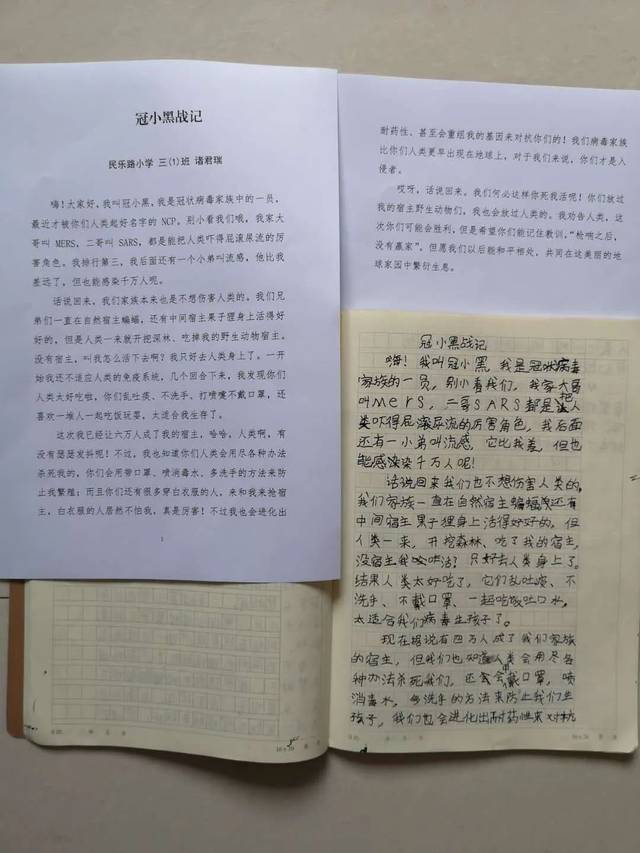 冠小黑战记
民乐路小学 三(1)班 诸君瑞
嗨!大家好,我叫冠小黑,我是冠状病毒家族中的一员,
最近才被你们人类起好名字的 NCP。别小看我们哦,我家大
哥叫 MERS,二哥叫 SARS,都是能把人类吓得屁滚尿流的厉
害角色。我排行第三,我后面还有一个小弟叫流感,他比我
差远了,但也能感染千万人呢。
话说回来,我们家族本来也是不想伤害人类的。我们兄
弟们一直在自然宿主蝙蝠,还有中间宿主果子狸身上活得好
好的,但是人类一来就开把深林、吃掉我的野生动物宿主。
没有宿主,叫我怎么活下去啊?我只好去人类身上了。一开
始我还不适应人类的免疫系统,几个回合下来,我发现你们
人类太好吃啦,你们乱吐痰、不洗手、打喷嚏不戴口罩,还
喜欢一堆人一起吃饭玩耍,太适合我生存了。
这次我已经让六万人成了我的宿主,哈哈,人类啊,有
没有瑟瑟发抖呢!不过,我也知道你们人类会用尽各种办法
杀死我的,你们会用带口罩、喷消毒水、多洗手的方法来防
止我繁殖;而且你们还有很多穿白衣服的人,来和我来抢宿
主,白衣服的人居然不怕我,真是厉害!不过我也会进化出
1
耐药性、甚至会重组我的基因来对抗你们的!我们病毒家族
比你们人类更早出现在地球上,对于我们来说,你们才是入
侵者。
哎呀,话说回来,我们何必这样你死我活呢!你们放过
我的宿主野生动物们,我也会放过人类的。我劝告人类,这
次你们可能会胜利,但是希望你们能记住教训,“枪响之后,
没有赢家”。但愿我们以后能和平相处,共同在这美丽的地
球家园中繁衍生息。
冠小黑战记
嗨!我叫冠小黑,我是冠状病毒
家族的一员,别小看我们,我家大哥
叫mers,二哥SARS都是把人
类吓得屁滚尿流的厉害角色,我后面
还有一小弟叫流感,它比我差,但也
能感染千万人呢!
话说回来我们也不想伤害人类的,
我们家族一直在自然宿主蝙蝠还有
中间宿主果子狸身上活得好好的,但
人类一来,开挖森林、吃了我的宿主,
没宿主我咋活?只好去人类身上了。
结果人类太好吃了,它们乱吐痰、不
洗手、不戴口罩、一起吃饭吐口水,
太适合我们病毒生孩子了。
现在据说有四万人成了我们家族
的宿主,但我们也知道人类会用尽各
种办法杀死我们,还会戴口罩,喷
消毒水,多洗手的方法来防止我们生
孩子,我们也会进化出耐药性来对抗